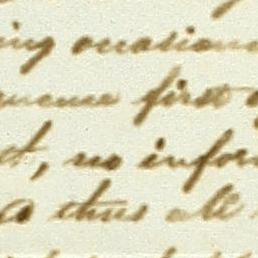 ing occasion
first
t, no infor
a thus all